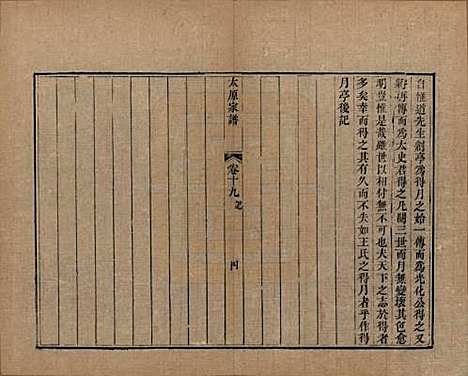 自惟道先生創亭為得月之始一傳而為光化公得之又
再傳而為太史君得之凡閱三世而月無變壞其色愈
明豈惟是哉雖世相付無不可也夫天下之志於得
多矣幸而得之其有久而不失如王氏之得月者乎作得
月亭後記
太原家譜
卷十九
四